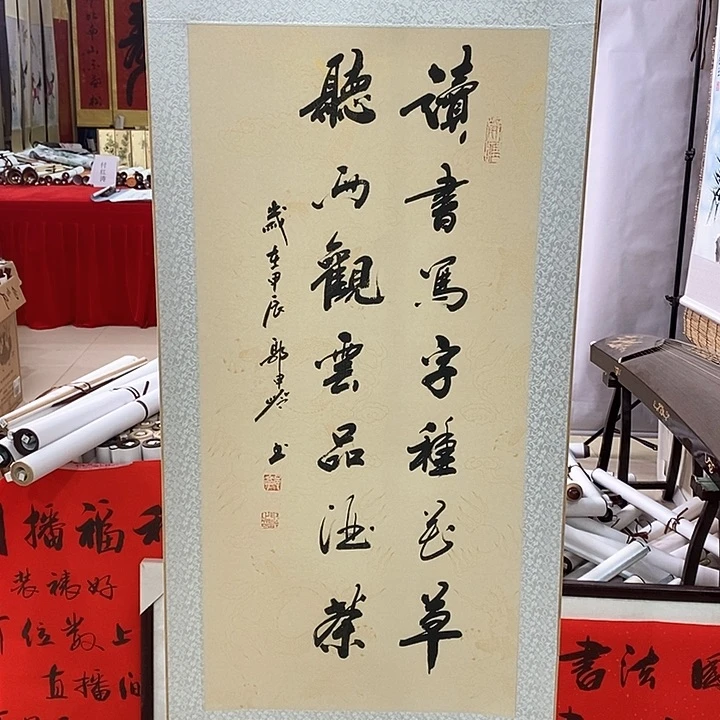 讀書寫字種花草
聽雨觀雲品酒茶
歲在甲辰郭申
书
播福
装裱好
位数上
直播间
书法國